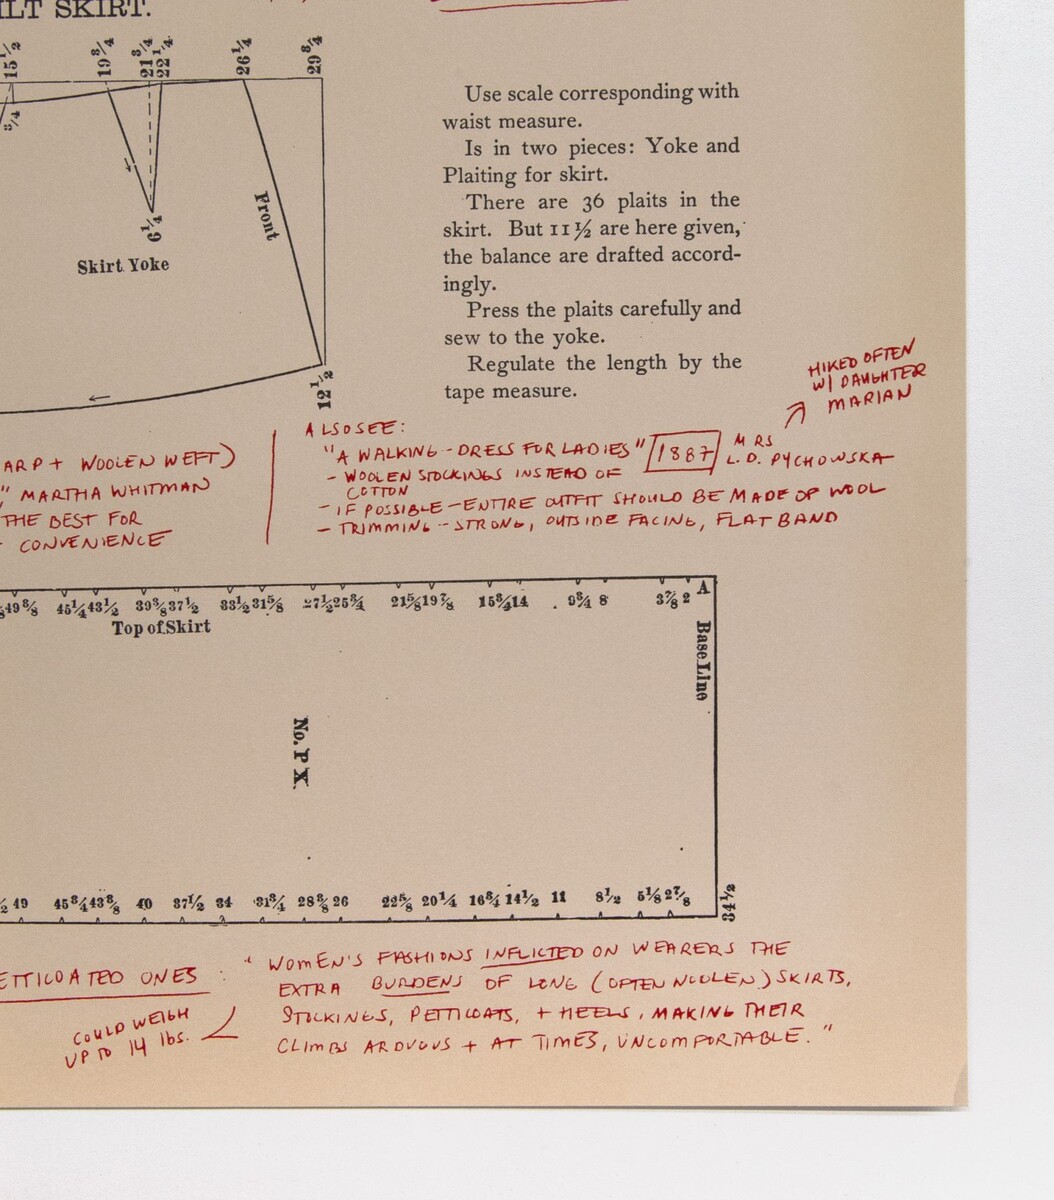 ILT SKIRT.
15½ 19¾ 21¾ 22¼ 26¼ 29¾
¾
6¼
Front
Skirt Yoke
12½
Use scale corresponding with
waist measure.
Is in two pieces: Yoke and
Plaiting for skirt.
There are 36 plaits in the
skirt. But 11½ are here given,
the balance are drafted accord-
ingly.
Press the plaits carefully and
sew to the yoke.
Regulate the length by the
tape measure.
HIKED OFTEN
W/ DAUGHTER
MARIAN
ARP + WOOLEN WEFT)
" MARTHA WHITMAN
THE BEST FOR
CONVENIENCE
ALSO SEE:
"A WALKING-DRESS FOR LADIES" 1887 MRS
L. D. PYCHOWSKA
- WOOLEN STOCKINGS INSTEAD OF
COTTON
- IF POSSIBLE - ENTIRE OUTFIT SHOULD BE MADE OF WOOL
- TRIMMING - STRONG, OUTSIDE FACING, FLAT BAND
49⅜ 45¼ 43½ 39⅜ 37½ 33½ 31⅝ 27½ 25¾ 21⅝ 19⅞ 15¾ 14 9¾ 8 3⅞ 2 A
Top of Skirt
Base Line
No. P X.
½ 49 45¾ 43⅜ 40 37½ 34 31¾ 28⅜ 26 22⅝ 20¼ 16¾ 14½ 11 8½ 5⅛ 2⅞
34½
ETTICOATED ONES :
COULD WEIGH
UP TO 14 lbs.
"WOMEN'S FASHIONS INFLICTED ON WEARERS THE
EXTRA BURDENS OF LONG (OFTEN WOOLEN) SKIRTS,
STOCKINGS, PETTICOATS, + HEELS, MAKING THEIR
CLIMBS ARDUOUS + AT TIMES, UNCOMFORTABLE."